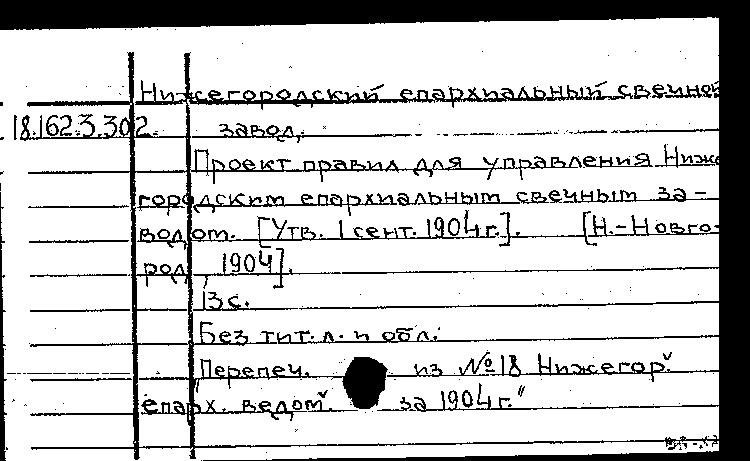 Нижегородский епархиальный свечной
18.162.3.302. завод.
Проект правил для управления Ниже
городским епархиальным свечным за-
водом. [Утв. 1 сент. 1904 г.]. [Н.-Новго-
род, 1904].
13 с.
Без тит. л. и обл.
"Перепеч. из №18 Нижегор.
епарх. ведом. за 1904 г."